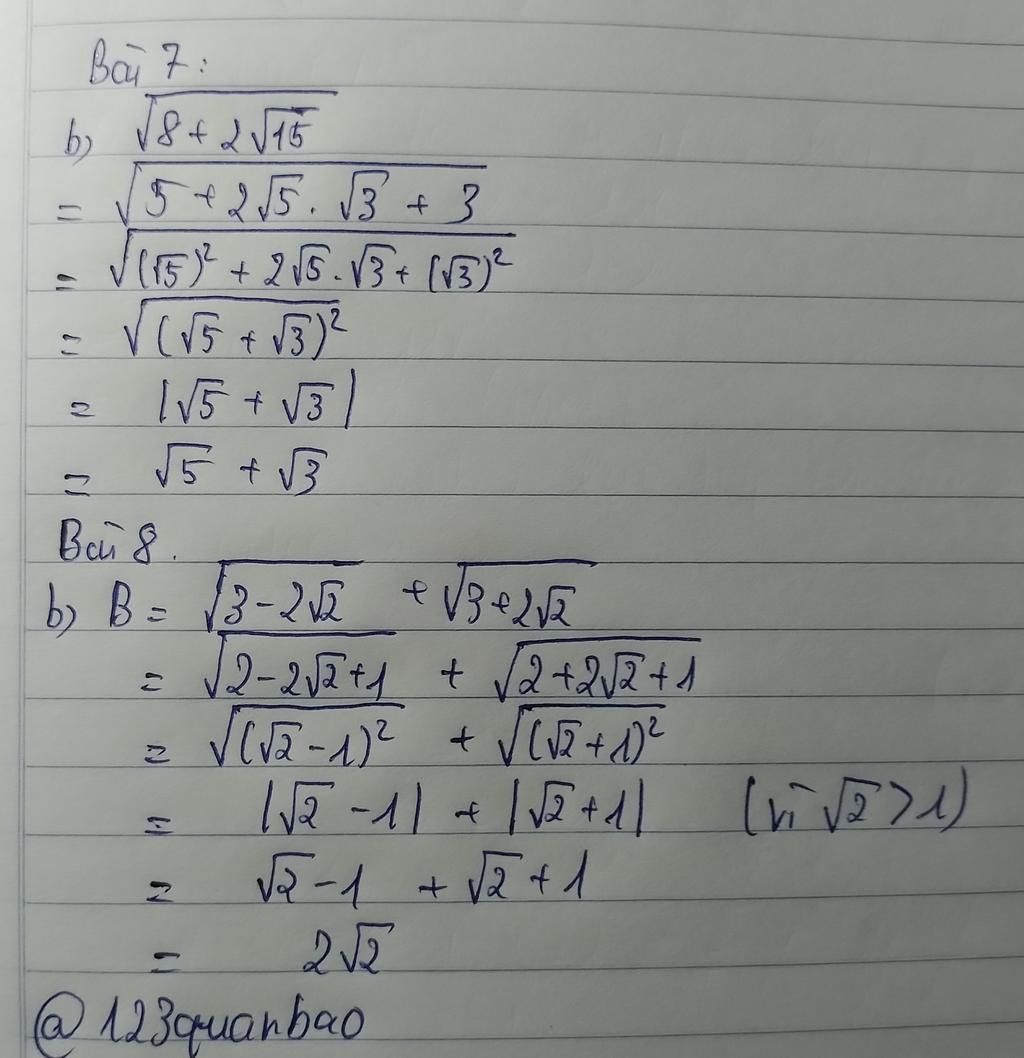 Bài 7:
b) √(8 + 2√15)
= √(5 + 2√5 . √3 + 3)
= √((√5)² + 2√5 . √3 + (√3)²)
= √((√5 + √3)²)
= |√5 + √3|
= √5 + √3
Bài 8.
b) B = √(3 - 2√2) + √(3 + 2√2)
= √(2 - 2√2 + 1) + √(2 + 2√2 + 1)
= √((√2 - 1)²) + √((√2 + 1)²)
= |√2 - 1| + |√2 + 1| (vì √2 > 1)
= √2 - 1 + √2 + 1
= 2√2
@123quanbao